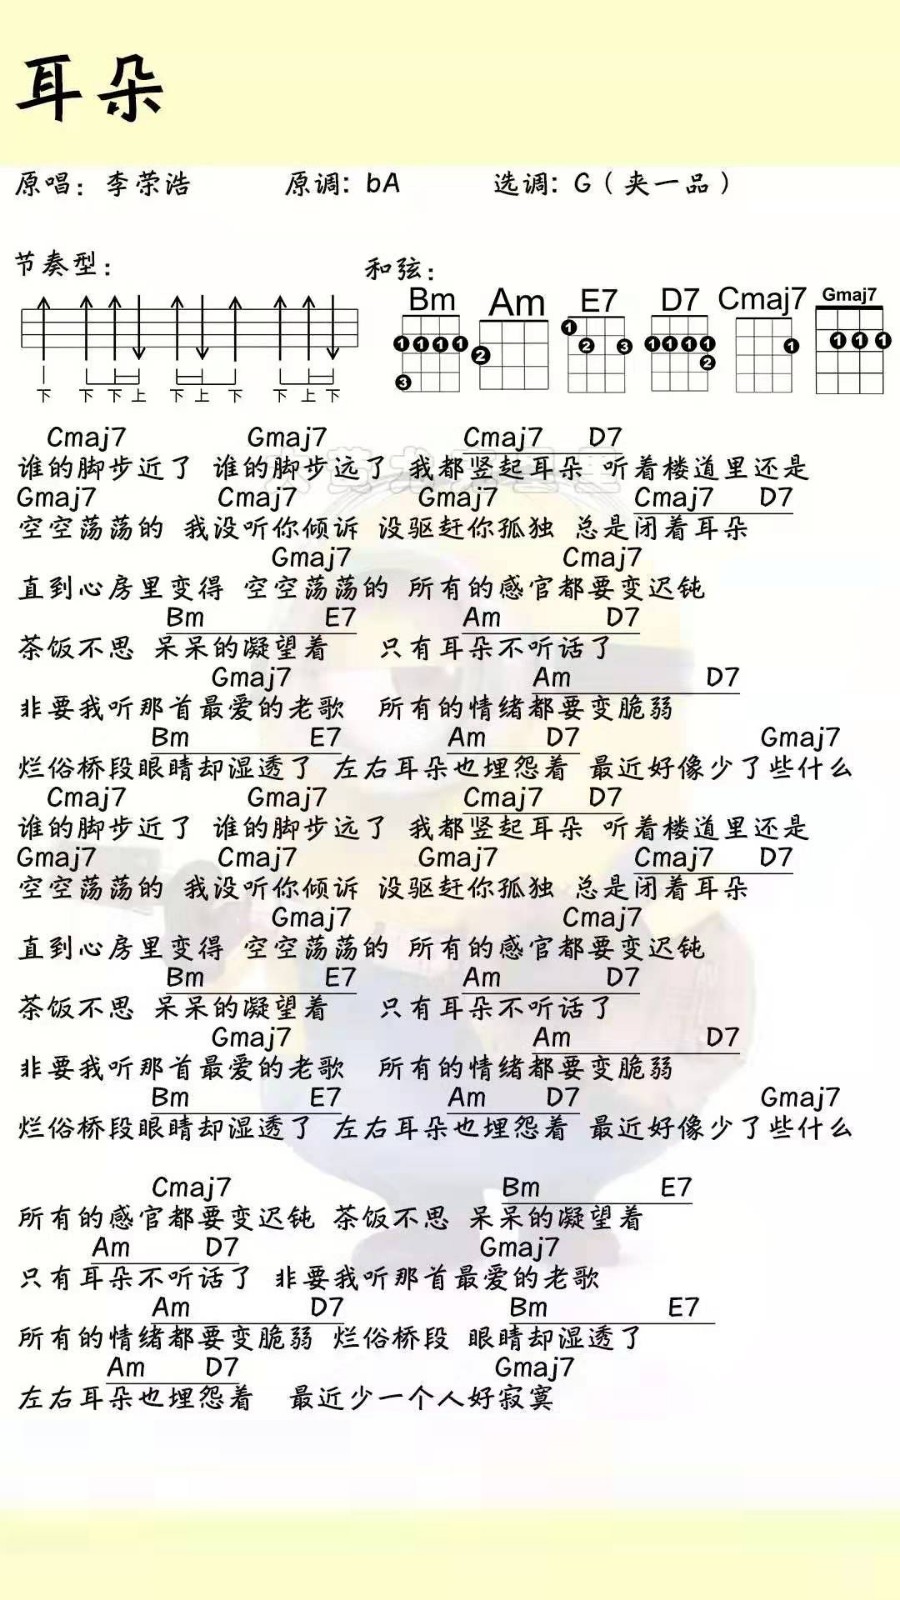 耳朵
原唱：李荣浩 原调：bA 选调：G（夹一品）
节奏型： 和弦：
Bm Am E7 D7 Cmaj7 Gmaj7
1 1 1 1 3 2 1 2 3 1 1 1 1 2 1 1 1 1
下 下 下 上 下 上 下 下 上 下
Cmaj7 Gmaj7 Cmaj7 D7
谁的脚步近了 谁的脚步远了 我都竖起耳朵 听着楼道里还是
Gmaj7 Cmaj7 Gmaj7 Cmaj7 D7
空空荡荡的 我没听你倾诉 没驱赶你孤独 总是闭着耳朵
Gmaj7 Cmaj7
直到心房里变得 空空荡荡的 所有的感官都要变迟钝
Bm E7 Am D7
茶饭不思 呆呆的凝望着 只有耳朵不听话了
Gmaj7 Am D7
非要我听那首最爱的老歌 所有的情绪都要变脆弱
Bm E7 Am D7 Gmaj7
烂俗桥段眼睛却湿透了 左右耳朵也埋怨着 最近好像少了些什么
Cmaj7 Gmaj7 Cmaj7 D7
谁的脚步近了 谁的脚步远了 我都竖起耳朵 听着楼道里还是
Gmaj7 Cmaj7 Gmaj7 Cmaj7 D7
空空荡荡的 我没听你倾诉 没驱赶你孤独 总是闭着耳朵
Gmaj7 Cmaj7
直到心房里变得 空空荡荡的 所有的感官都要变迟钝
Bm E7 Am D7
茶饭不思 呆呆的凝望着 只有耳朵不听话了
Gmaj7 Am D7
非要我听那首最爱的老歌 所有的情绪都要变脆弱
Bm E7 Am D7 Gmaj7
烂俗桥段眼睛却湿透了 左右耳朵也埋怨着 最近好像少了些什么
Cmaj7 Bm E7
所有的感官都要变迟钝 茶饭不思 呆呆的凝望着
Am D7 Gmaj7
只有耳朵不听话了 非要我听那首最爱的老歌
Am D7 Bm E7
所有的情绪都要变脆弱 烂俗桥段 眼睛却湿透了
Am D7 Gmaj7
左右耳朵也埋怨着 最近少一个人好寂寞